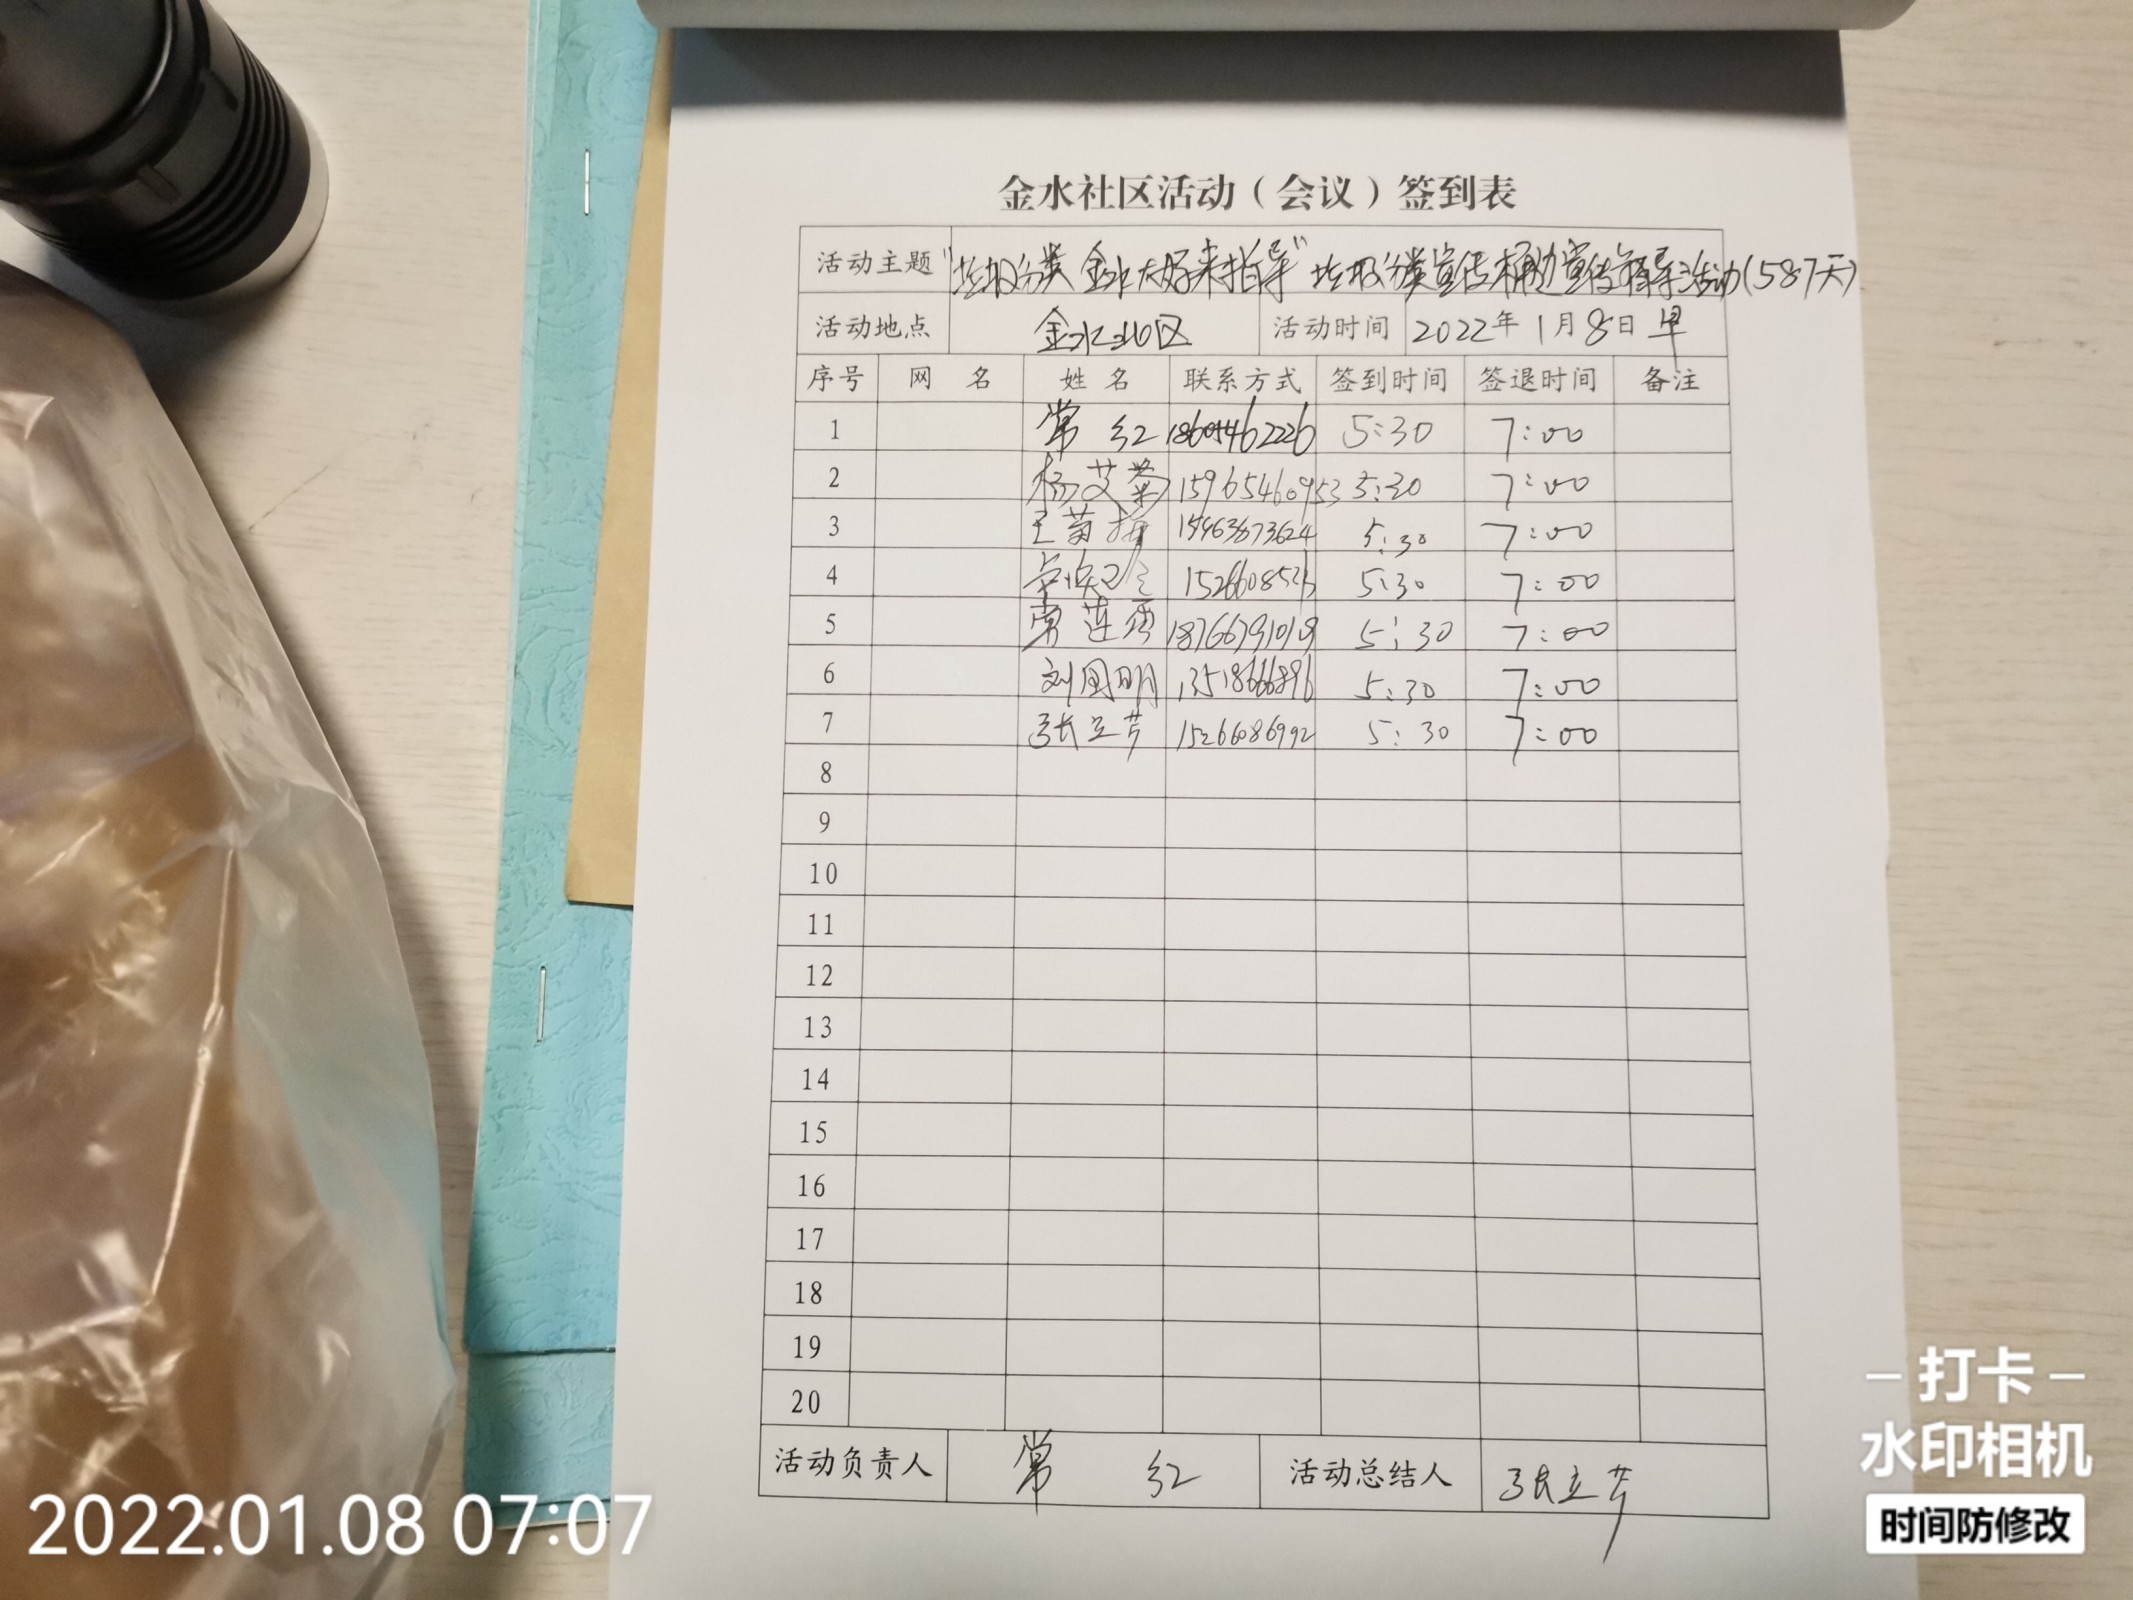 金水社区活动（会议）签到表
活动主题 "垃圾分类 金水大好来指导" 垃圾分类宣传桶边宣传督导活动(587天)
活动地点 金水社区 活动时间 2022年1月8日 早
序号 网 名 姓 名 联系方式 签到时间 签退时间 备注
1 常 红 5:30 7:00
2 杨艾菊 15965460953 5:30 7:00
3 王菊梅 5:30 7:00
4 5:30 7:00
5 常莲秀 18766791019 5:30 7:00
6 刘国明 13518666896 5:30 7:00
7 张立芳 15266086992 5:30 7:00
8
9
10
11
12
13
14
15
16
17
18
19
20
活动负责人 常 红 活动总结人 张立芳
2022.01.08 07:07
打卡
水印相机
时间防修改